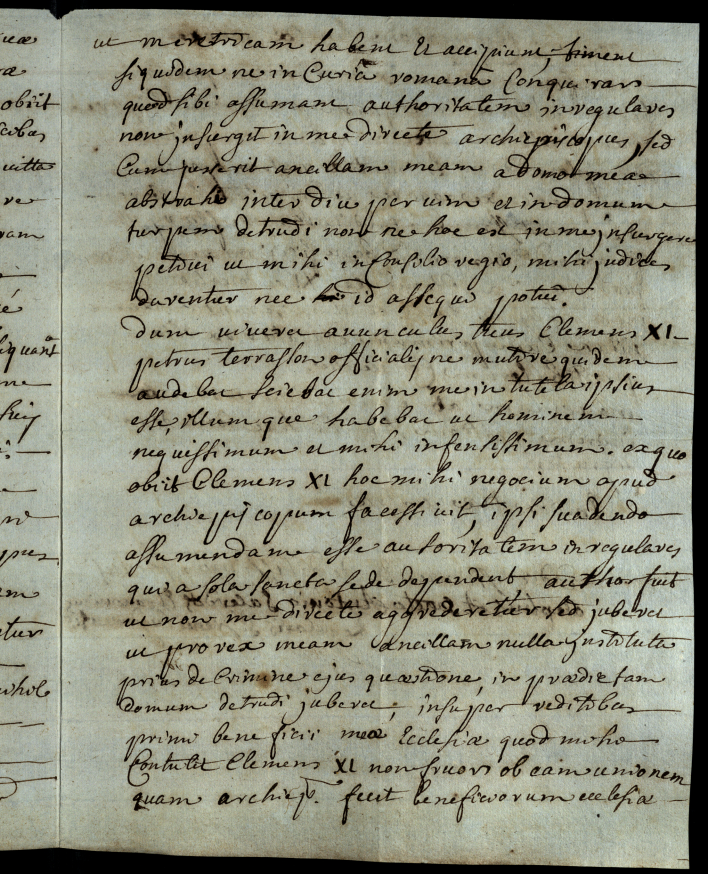 uæ
æ
obiit
uitta
re
ram
é
ne
ni
pus
m
tur
ut meretricam habent et accipiunt, timent
siquidem ne in Curiâ romanâ Conquerar
quod sibi assumant authoritatem in regulares
non insurgit in me directe archiepiscopus, sed
Cum jusserit ancillam meam a domo mea
abstrahi interdiu per uim et in domum
turpem detrudi nonne hoc est in me insurgere
petiui ut mihi in Consilio regio, mihi judices
darentur nec id assequi potui.
dum uiueret auunculus tuus Clemens XI
petrus terrasson officialis ne mutire quidem
audebat sciebat enim me in tutela ipsius
esse, illumque habebat ut hominem
nequissimum et mihi infensissimum. ex quo
obiit Clemens XI hoc mihi negocium apud
archiepiscopum facessiuit, ipsi suadendo
assumendam esse autoritatem in regulares
qui a sola sancta sede dependent author fuit
ut non me directe aggrederetur sed juberet
ut pro vex meam ancillam nulla instituta
prius de Crimine ejus quæstione, in prædictam
domum detrudi juberet; insuper reditibus
primi beneficii meæ Ecclesiæ quod mihi
Contulit Clemens XI non fruor ob eam unionem
quam archiep. fecit beneficiorum ecclesiæ